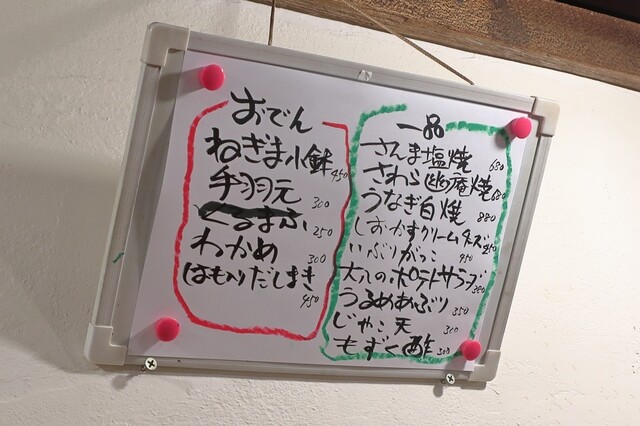 おでん
ねぎま小鉢 450
手羽元 300
くるまふ 250
わかめ 300
はも入りだしまき 450
一品
さんま塩焼 650
さわら幽庵焼 680
うなぎ白焼 880
しおかすクリームチーズ 450
いぶりがっこ 450
大人のポテトサラダ 380
うるめあぶり 350
じゃこ天 300
もずく酢 300